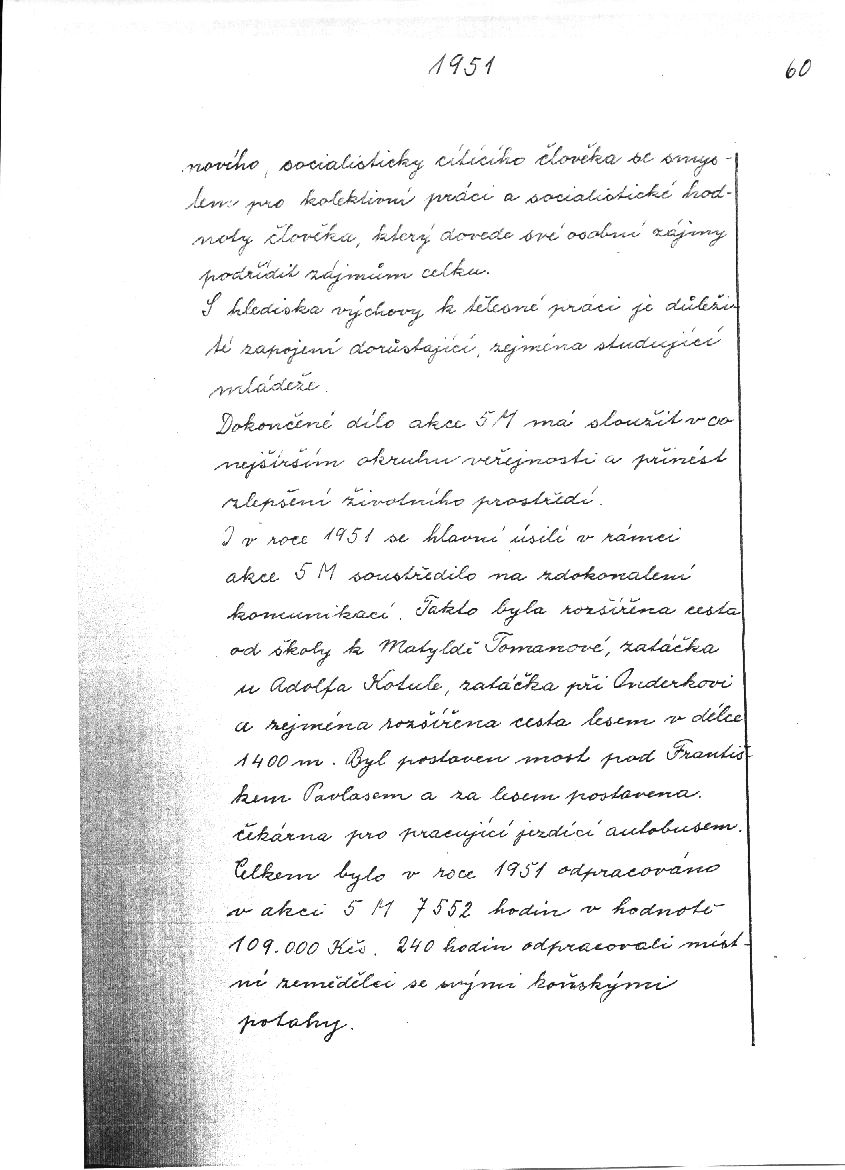 1951
60
nového, socialisticky cítícího člověka se smys-
lem pro kolektivní práci a socialistické hod-
noty člověka, který dovede své osobní zájmy
podřídit zájmům celku.
S hlediska výchovy k tělesné práci je důleži-
té zapojení dorůstající, zejména studující
mládeže.
Dokončené dílo akce 5 M má sloužit v co
nejširším okruhu veřejnosti a přinést
zlepšení životního prostředí.
I v roce 1951 se hlavní úsilí v rámci
akce 5 M soustředilo na zdokonalení
komunikací. Takto byla rozšířena cesta
od školy k Matyldě Tomanové, zatáčka
u Adolfa Kotule, zatáčka při Onderkovi
a zejména rozšířena cesta lesem v délce
1400 m. Byl postaven most pod Františ-
kem Pavlasem a za lesem postavena
čekárna pro pracující jezdící autobusem.
Celkem bylo v roce 1951 odpracováno
v akci 5 M 7552 hodin v hodnotě
109.000 Kčs. 240 hodin odpracovali míst-
ní zemědělci se svými koňskými
potahy.